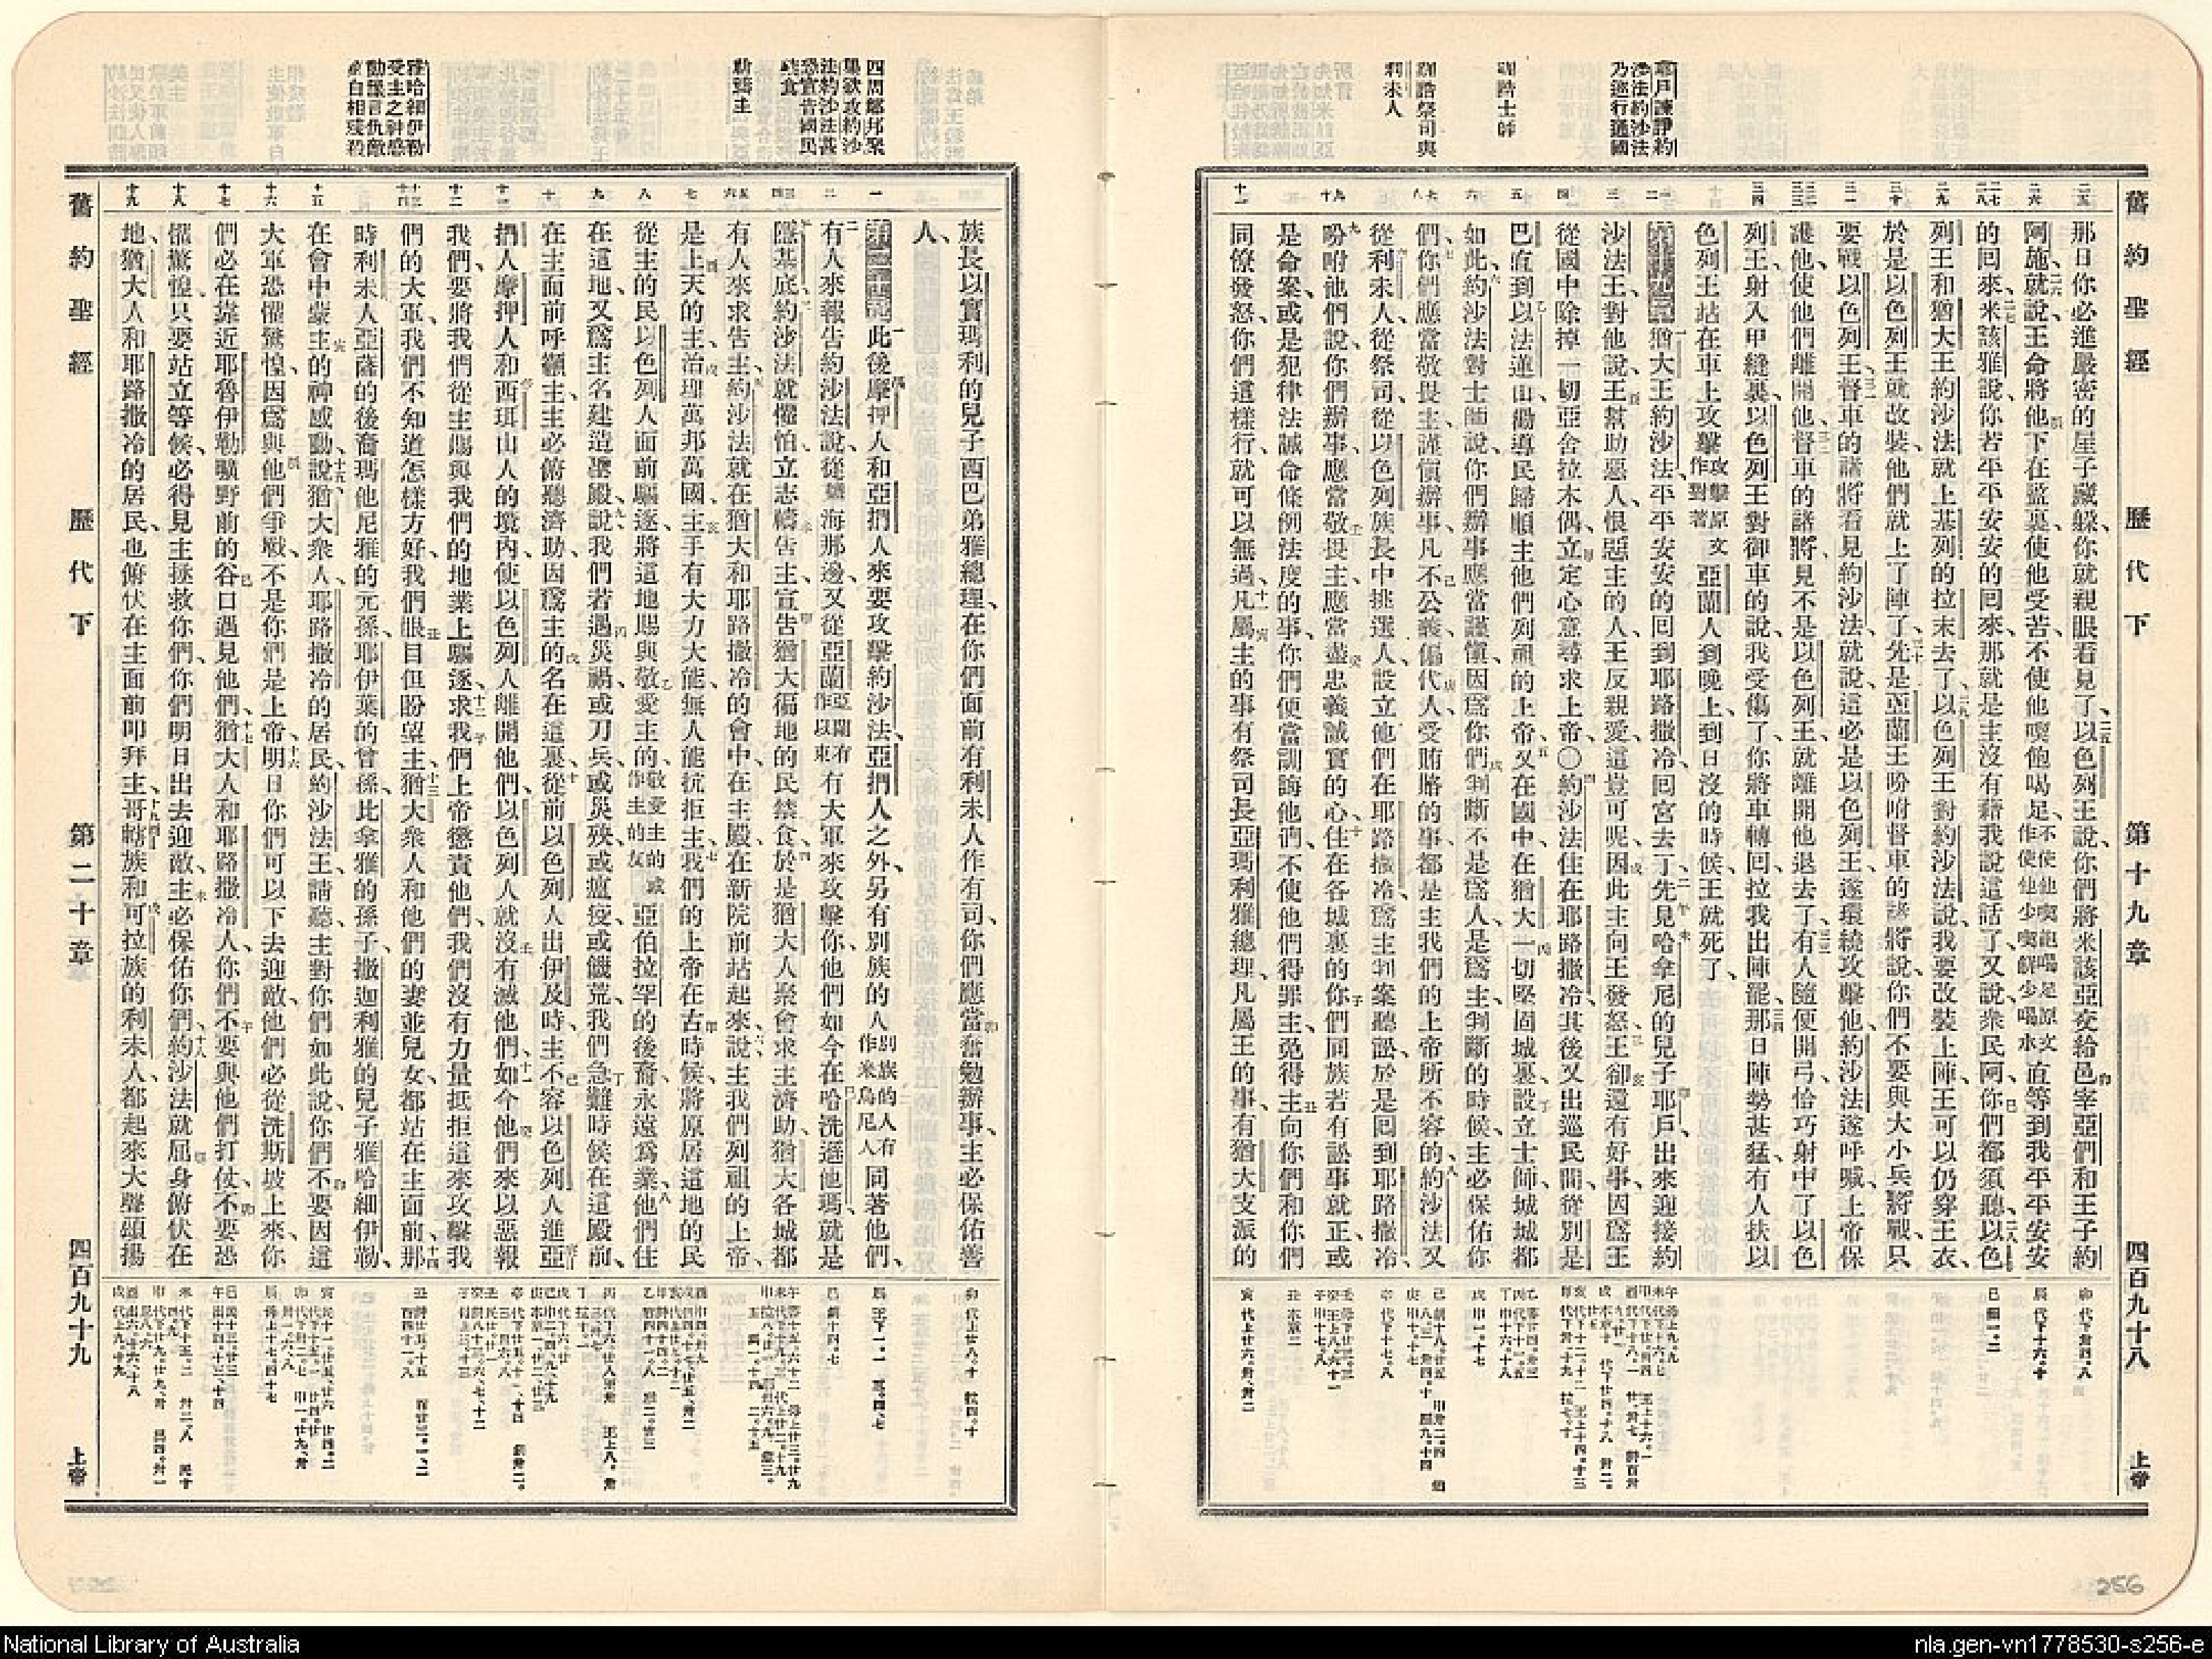 耶戶諫諍約
沙法約沙法
乃巡行通國
訓誨士師
訓誨祭司與
利未人
舊約聖經 歷代下 第十九章 四百九十八 上帝
那日你必進嚴密的屋子藏躲、你就親眼看見了、二五以色列王說、你們將米該亞交給邑宰亞們和王子約
阿施、二六就說、王命將他下在監裏、使他受苦、不使他喫飽喝足、不使他喫飽喝足原文作使他少喫餅少喝水直等到我平平安安
的回來、二七米該雅說、你若平平安安的回來、那就是主沒有藉我說這話了、又說、衆民阿、你們都須聽、二八以色
列王和猶大王約沙法就上基列的拉末去了、二九以色列王對約沙法說、我要改裝上陣、王可以仍穿王衣、
於是以色列王就改裝、他們就上了陣了、三十先是亞蘭王吩咐督車的諸將說、你們不要與大小兵將戰、只
要戰以色列王、三一督車的諸將看見約沙法就說、這必是以色列王、遂環繞攻擊他、約沙法遂呼喊、上帝保
護他、使他們離開他、三二督車的諸將、見不是以色列王、就離開他退去了、三三有人隨便開弓、恰巧射中了以色
列王、射入甲縫裏、以色列王對御車的說、我受傷了、你將車轉回、拉我出陣罷、三四那日陣勢甚猛、有人扶以
色列王站在車上攻擊攻擊原文作對著亞蘭人到晚上、到日沒的時候、王就死了、
第十九章 一猶大王約沙法、平平安安的回到耶路撒冷、回宮去了、二先見哈拿尼的兒子耶戶、出來迎接約
沙法王、對他說、王幫助惡人、恨惡主的人、王反親愛、這豈可呢、因此主向王發怒、三王卻還有好事、因爲王
從國中除掉一切亞舍拉木偶、立定心意尋求上帝、〇四約沙法住在耶路撒冷、其後又出巡民間、從別是
巴直到以法蓮山、勸導民歸順主他們列祖的上帝、五又在國中、在猶大一切堅固城裏、設立士師、城城都
如此、六約沙法對士師說、你們辦事應當謹愼、因爲你們判斷、不是爲人、是爲主、判斷的時候、主必保佑你
們、七你們應當敬畏主、謹愼辦事、凡不公義、偏代人、受賄賂的事、都是主我們的上帝所不容的、八約沙法又
從利未人、從祭司、從以色列族長中挑選人、設立他們在耶路撒冷、爲主判案聽訟、於是回到耶路撒冷、
九吩咐他們說、你們辦事、應當敬畏主、應當盡忠義誠實的心、十住在各城裏的你們同族、若有訟事就正、或
是命案、或是犯律法誡命條例法度的事、你們便當訓誨他們、不使他們得罪主、免得主向你們和你們
同僚發怒、你們這樣行、就可以無過、十一凡屬主的事、有祭司長亞瑪利雅總理、凡屬王的事、有猶大支派的
四周鄰邦聚
集欲攻約沙
法約沙法甚
恐宣告國民
禁食
祈禱主
雅哈細伊勒
受主之神感
動預言仇敵
必自相殘殺
族長以實瑪利的兒子西巴弟雅總理、在你們面前有利未人作有司、你們應當奮勉辦事、主必保佑善
人、
第二十章 一此後摩押人和亞捫人來要攻擊約沙法、亞捫人之外、另有別族的人別族的人有作米烏尼人同著他們、
二有人來報告約沙法說、從鹽海那邊、又從亞蘭亞蘭有作以東有大軍來攻擊你、他們如今在哈洗遜他瑪、就是
隱基底、三約沙法就懼怕、立志禱告主、宣告猶大徧地的民禁食、四於是猶大人聚會求主濟助、猶大各城都
有人來求告主、五約沙法就在猶大和耶路撒冷的會中、在主殿在新院前站起來、六說、主我們列祖的上帝、
是上天的主、治理萬邦萬國、主手有大力大能、無人能抗拒主、七我們的上帝在古時候、將原居這地的民
從主的民以色列人面前驅逐、將這地賜與敬愛主的、敬愛主的或作主的友亞伯拉罕的後裔、永遠爲業、八他們住
在這地、又爲主名建造聖殿、九說、我們若遇災禍、或刀兵、或災殃、或瘟疫、或饑荒、我們急難時候、在這殿前、
在主面前呼籲主、主必俯聽濟助、因爲主的名在這裏、十從前以色列人出伊及時、主不容以色列人進亞
捫人摩押人和西珥山人的境內、使以色列人離開他們、以色列人就沒有滅他們、十一如今他們來以惡報
我們、要將我們從主賜與我們的地業上驅逐、十二求我們上帝懲責他們、我們沒有力量抵拒這來攻擊我
們的大軍、我們不知道怎樣方好、我們眼目但盼望主、十三猶大衆人和他們的妻並兒女、都站在主面前、十四那
時利未人亞薩的後裔瑪他尼雅的元孫、耶伊葉的曾孫、比拿雅的孫子、撒迦利雅的兒子雅哈細伊勒、
在會中蒙主的神感動、十五說、猶大衆人、耶路撒冷的居民、約沙法王、請聽、主對你們如此說、你們不要因這
大軍恐懼驚惶、因爲與他們爭戰、不是你們、是上帝、十六明日你們可以下去迎敵、他們必從洗斯坡上來、你
們必在靠近耶魯伊勒曠野前的谷口遇見他們、十七猶大人和耶路撒冷人、你們不要與他們打仗、不要恐
懼驚惶、只要站立等候、必得見主拯救你們、你們明日出去迎敵、主必保佑你們、十八約沙法就屈身俯伏在
地、猶大人和耶路撒冷的居民、也俯伏在主面前叩拜主、十九哥轄族和可拉族的利未人、都起來大聲頌揚
舊約聖經 歷代下 第二十章 四百九十九 上帝
256
National Library of Australia
nla.gen-vn1778530-s256-e